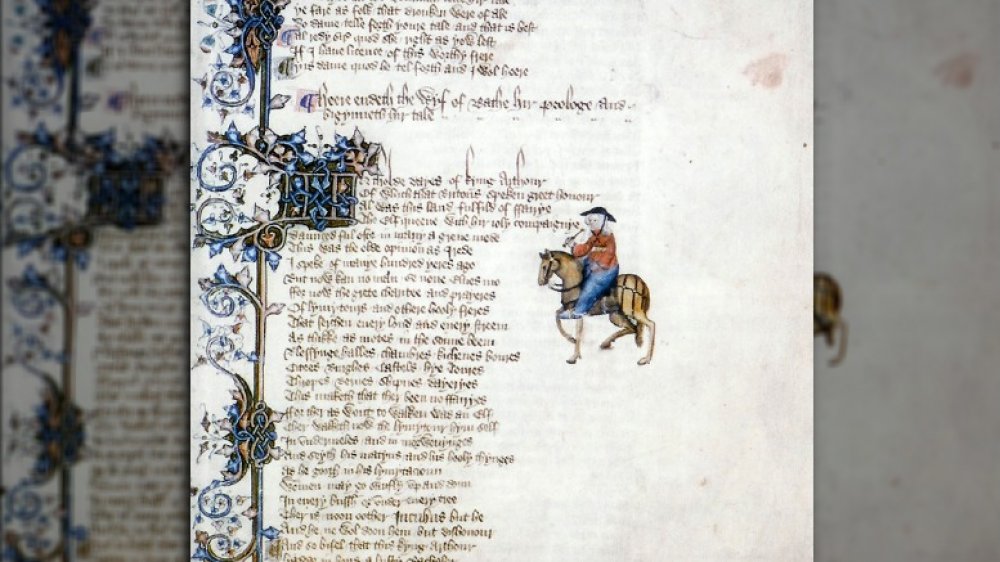 ye fare as folk that dronken were of ale
Do dame telle forth youre tale and that is best
Al redy sire quod she right as yow lest
If I haue licence of this worthy frere
Yis dame quod he tel forth and I wol heere
Heere endeth the Wyf of Bathe hir prologe And
bigynneth hir tale
In tholde dayes of kyng Arthour
Of which that Britons speken greet honour
Al was this land fulfild of ffairye
The Elf queene with hir ioly compaignye
Daunced ful ofte in many a grene mede
This was the olde opinion as I rede
I speke of manye hundred yeres ago
But now kan no man se none Elues mo
ffor now the grete charitee and prayeres
Of lymytours and othere hooly freres
That serchen euery lond and euery streem
As thikke as motes in the sonne beem
Blessynge halles chambres kichenes boures
Citees Burghes Castels hye Toures
Thropes Bernes Shipnes Dayeryes
This maketh that ther been no ffairyes
ffor ther as wont to walken was an Elf
Ther walketh now the lymytour hym self
In vndermeles and in morwenynges
And seyth his matyns and his hooly thynges
As he gooth in his lymytacioun
Wommen may go saufly vp and doun
In euery bussh or vnder euery tree
Ther is noon oother Incubus but he
And he ne wol doon hem but dishonour
And so bifel that this kyng Arthour
hadde in hous a lusty Bacheler